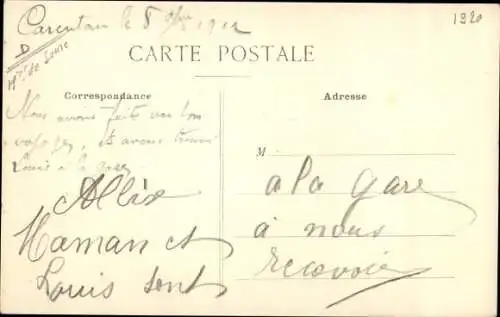 Carentan le 8 9bre 1912
1920
D
CARTE POSTALE
Correspondance
Adresse
Nous avons fait un bon
voyage, et avons trouvé
Louis à la gare
M
Allix
Maman et
Louis sont
a la gare
à nous
recevoir